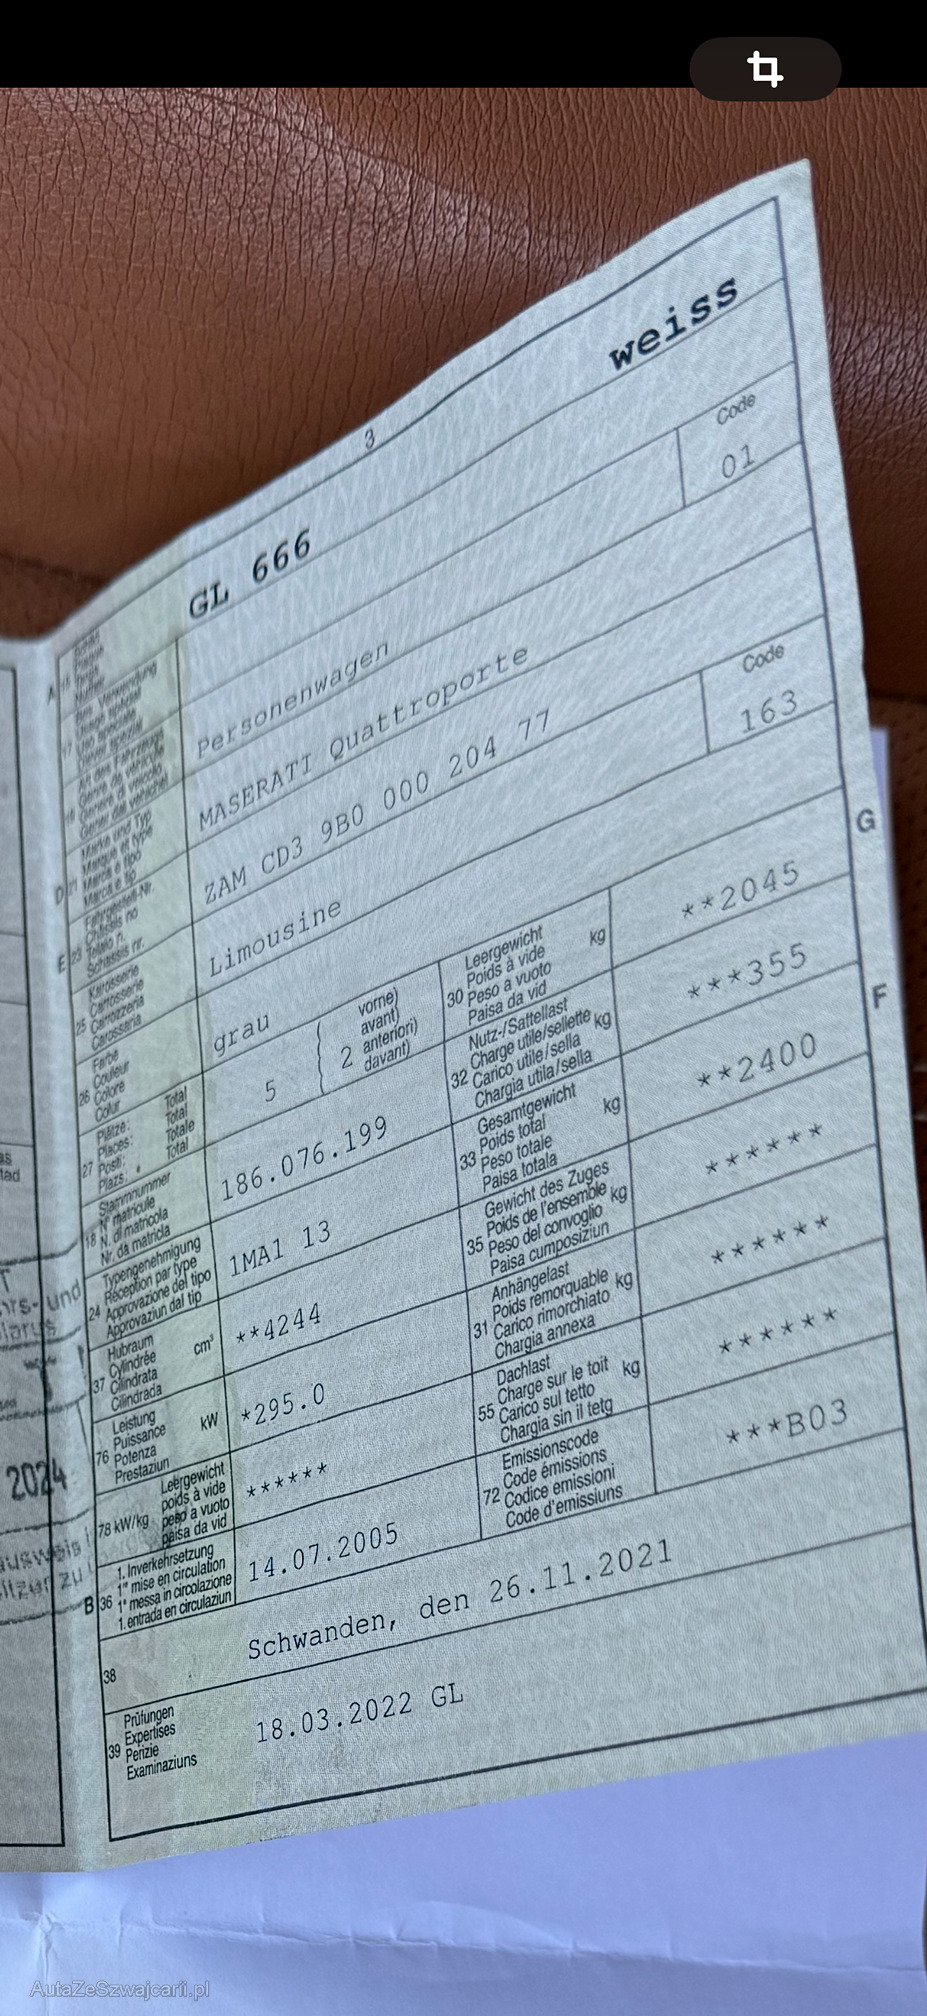 3
weiss
GL 666
Code
01
Personenwagen
MASERATI Quattroporte
ZAM CD3 9B0 000 204 77
Code
163
Limousine
grau
A 15
17
19
D 21 Marke und Typ
Marque et type
Marca e tipo
Marca e tip
E 23 Fahrgestell-Nr.
Châssis no
Telaio n.
Schassis nr.
25 Karosserie
Carrosserie
Carrozzeria
Carossaria
26 Farbe
Couleur
Colore
Colur
27 Plätze: Total
Places: Total
Posti: Totale
Plazs: Total
5
2
vorne)
avant)
anteriori)
davant)
18 Stammnummer
N° matricule
N. di matricola
Nr. da matricla
186.076.199
24 Typengenehmigung
Réception par type
Approvazione del tipo
Approvaziun dal tip
1MA1 13
37 Hubraum
Cylindrée
Cilindrata
Cilindrada
cm³
**4244
76 Leistung
Puissance
Potenza
Prestaziun
kW
*295.0
78 kW/kg Leergewicht
poids à vide
peso a vuoto
paisa da vid
******
B 36 1. Inverkehrsetzung
1re mise en circulation
1a messa in circolazione
1. entrada en circulaziun
14.07.2005
G
30 Leergewicht
Poids à vide
Peso a vuoto
Paisa da vid
kg
**2045
32 Nutz-/Sattellast
Charge utile/sellette
Carico utile/sella
Chargia utila/sella
kg
***355
F
33 Gesamtgewicht
Poids total
Peso totale
Paisa totala
kg
**2400
35 Gewicht des Zuges
Poids de l'ensemble
Peso del convoglio
Paisa cumposiziun
kg
******
31 Anhängelast
Poids remorquable
Carico rimorchiato
Chargia annexa
kg
******
55 Dachlast
Charge sur le toit
Carico sul tetto
Chargia sin il tetg
kg
******
72 Emissionscode
Code émissions
Codice emissioni
Code d'emissiuns
***B03
38
Schwanden, den 26.11.2021
39 Prüfungen
Expertises
Perizie
Examinaziuns
18.03.2022 GL
und
2024
ausweis
AutaZeSzwajcarii.pl